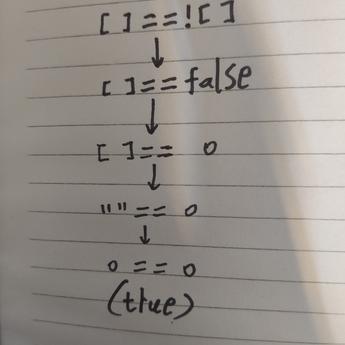 [ ]==![ ]
↓
[ ]==false
↓
[ ]== 0
↓
""== 0
↓
0 == 0
(true)